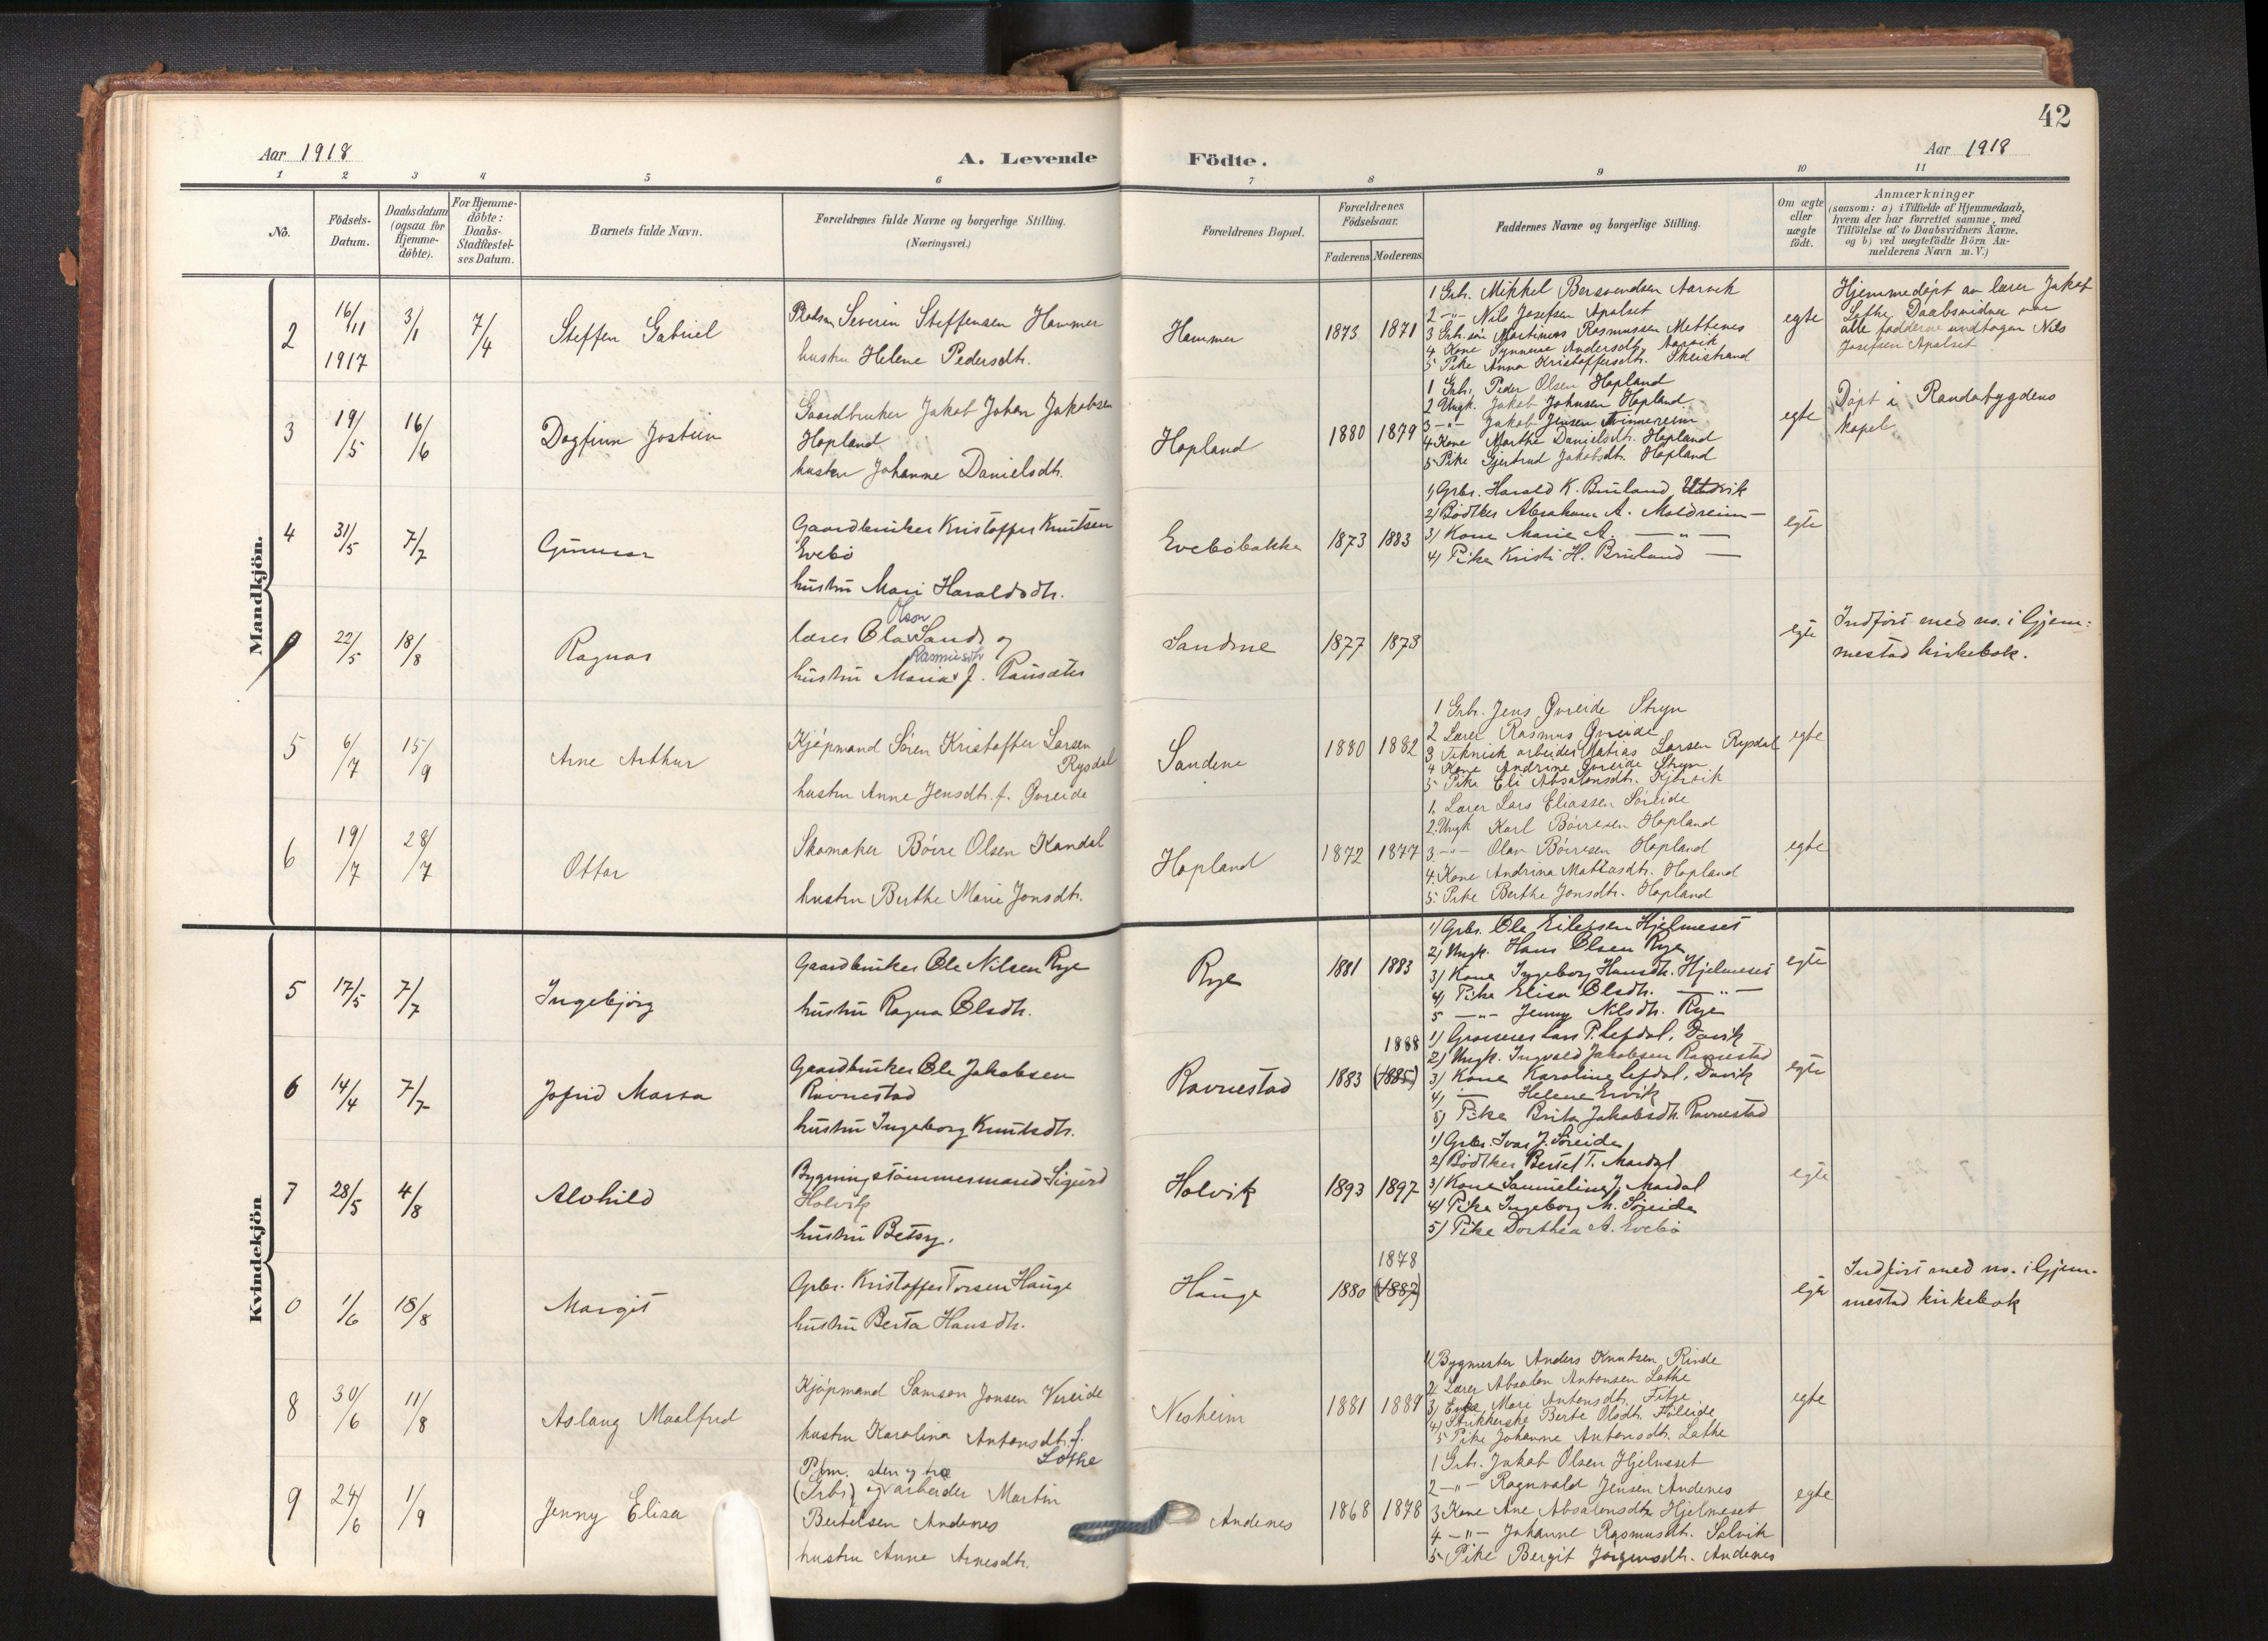 42
Aar 1918
A. Levende Födte.
Aar 1918
1 2 3 4 5 6 7 8 9 10 11
No.
Födsels-
Datum.
Daabsdatum
(ogsaa for
Hjemme-
döbte).
For Hjemme-
döbte:
Daabs-
Stadfæstel-
ses Datum.
Barnets fulde Navn.
Forældrenes fulde Navne og borgerlige Stilling.
(Næringsvei.)
Forældrenes Bopæl.
Forældrenes
Födselsaar.
Faderens Moderens
Faddernes Navne og borgerlige Stilling.
Om ægte
eller
uægte
födt.
Anmærkninger
(saasom: a) i Tilfælde af Hjemmedaab,
hvem der har forrettet samme, med
Tilföielse af to Daabsvidners Navne,
og b) ved uægtefödte Börn An-
melderens Navn m. V.)
Mandkjön.
2
16/11
1917
3/1
7/4
Steffen Gabriel
Pladsm Severin Steffensen Hammer
hustru Helene Pedersdtr.
Hammer
1873 1871
1 Grb. Mikkel Bersvendsen Aarvik
2 -"- Nils Josefsen Apalset
3 Grb. søn Martinus Rasmussen Mettenes
4 Kone Synneve Andersdtr. Aarvik
5 Pike Anna Kristoffersdtr. Skeistrand
egte
Hjemmedøpt av lærer Jakob
Lothe. Daabsvidner var
alle fadderne undtagen Nils
Josefsen Apalset
3
19/5
16/6
Dagfinn Jostein
Gaardbruker Jakob Johan Jakobsen
Hopland
hustru Johanne Danielsdtr.
Hopland
1880 1879
1 Grb. Peder Olsen Hopland
2 Ungk. Jakob Johnsen Hopland
3 -"- Jakob Jensen Tvinnereim
4 Kone Marthe Danielsdtr. Hopland
5 Pike Gjertrud Jakobsdtr. Hopland
egte
Døpt i Randabygdens
kapel
4
31/5
7/7
Gunnar
Gaardbruker Kristoffer Knutsen
Evebø
hustru Mari Haraldsdtr.
Evebøbakke
1873 1883
1) Grbr. Harald K. Bruland Utvik
2) Bødtker Abraham A. Moldreim -
3) Kone Marie A. - " -
4) Pike Kristi H. Bruland -
egte
0
22/5
18/8
Ragnar
Olson
lærer Ola Sande og
Rasmusdtr
hustru Maria f. Rausæter
Sandene
1877 1873
egte
Indført med no. i Gjem-
mestad kirkebok.
5
6/7
15/9
Arne Arthur
Kjøpmand Søren Kristoffer Larsen
Rysdal
hustru Anne Jensdtr. f. Gvreide
Sandene
1880 1882
1 Grb. Jens Gvreide Stryn
2 Lærer Rasmus Gvreide
3 Teknisk arbeider Matias Larsen Rysdal
4 Kone Andrine Gvreide Stryn
5 Pike Eli Absalonsdtr.
egte
6
19/7
28/7
Ottar
Skomaker Bøire Olsen Kandal
hustru Berthe Marie Jonsdtr.
Hopland
1872 1877
1. Lærer Lars Eliassen Søreide
2. Ungk Karl Bøiresen Hopland
3. -"- Olav Bøiresen Hopland
4. Kone Andrina Mattiasdtr. Hopland
5. Pike Berthe Jonsdtr. Hopland
egte
Kvindekjön
5
17/5
7/7
Ingebjørg
Gaardbruker Ole Nilsen Rye
hustru Ragna Olsdtr.
Rye
1881 1883
1) Grbr. Ole Eilertsen Hjelmeset
2) Ungk. Hans Olsen Rye
3) Kone Ingeborg Hansdtr. Hjelmeset
4) Pike Elisa Olsdtr. - " -
5 -"- Jenny Nilsdtr. Rye
egte
6
14/4
7/7
Jofrid Marta
Gaardbruker Ole Jakobsen
Ravnestad
hustru Ingeborg Knutsdtr.
Ravnestad
1888
1883 (1885)
1) Grosserer Lars P. Lefdal, Davik
2) Ungk. Ingvald Jakobsen Ravnestad
3) Kone Karoline Lefdal, Davik
4) - Helene Ervik
5) Pike Brita Jakobsdtr. Ravnestad
egte
7
28/5
4/8
Alvhild
Bygningstømmermand Sigurd
Holvik
hustru Betsy.
Holvik
1893 1897
1) Grbr. Ivar J. Søreide
2) Bødtker Bertel T. Mardal
3) Kone Samueline J. Mardal
4) Pike Ingeborg M. Søreide
5) Pike Dorthea A. Evebø
egte
0
1/6
18/8
Margit
Grbr. Kristoffer Torsen Hauge
hustru Berta Hansdtr.
Hauge
1878
1880 (1882)
egte
Indført med no. i Gjem-
mestad kirkebok
8
30/6
11/8
Aslaug Maalfrid
Kjøpmand Samson Jonsen Vereide
hustru Karolina Antonsdtr. f.
Lothe
Nesheim
1881 1889
1) Bygmester Anders Knutsen Rinde
2 Lærer Absalon Antonsen Lothe
3) Enke Mari Antonsdtr. Fitje
4) Strikkerske Berte Olsdtr. Føleide
5 Pike Johanne Antonsdtr. Lothe
egte
9
24/6
1/9
Jenny Elisa
P.bm. sten og træ
(Grbr) og arbeider Martin
Bertelsen Andenes
hustru Anne Arnesdtr.
Andenes
1868 1878
1 Grb. Jakob Olsen Hjelmeset
2 -"- Ragnvald Jensen Andenes
3 Kone Ane Absalonsdtr. Hjelmeset
4 -"- Johanne Rasmusdtr. Solvik
5 Pike Bergit Jørgensdtr. Andenes
egte